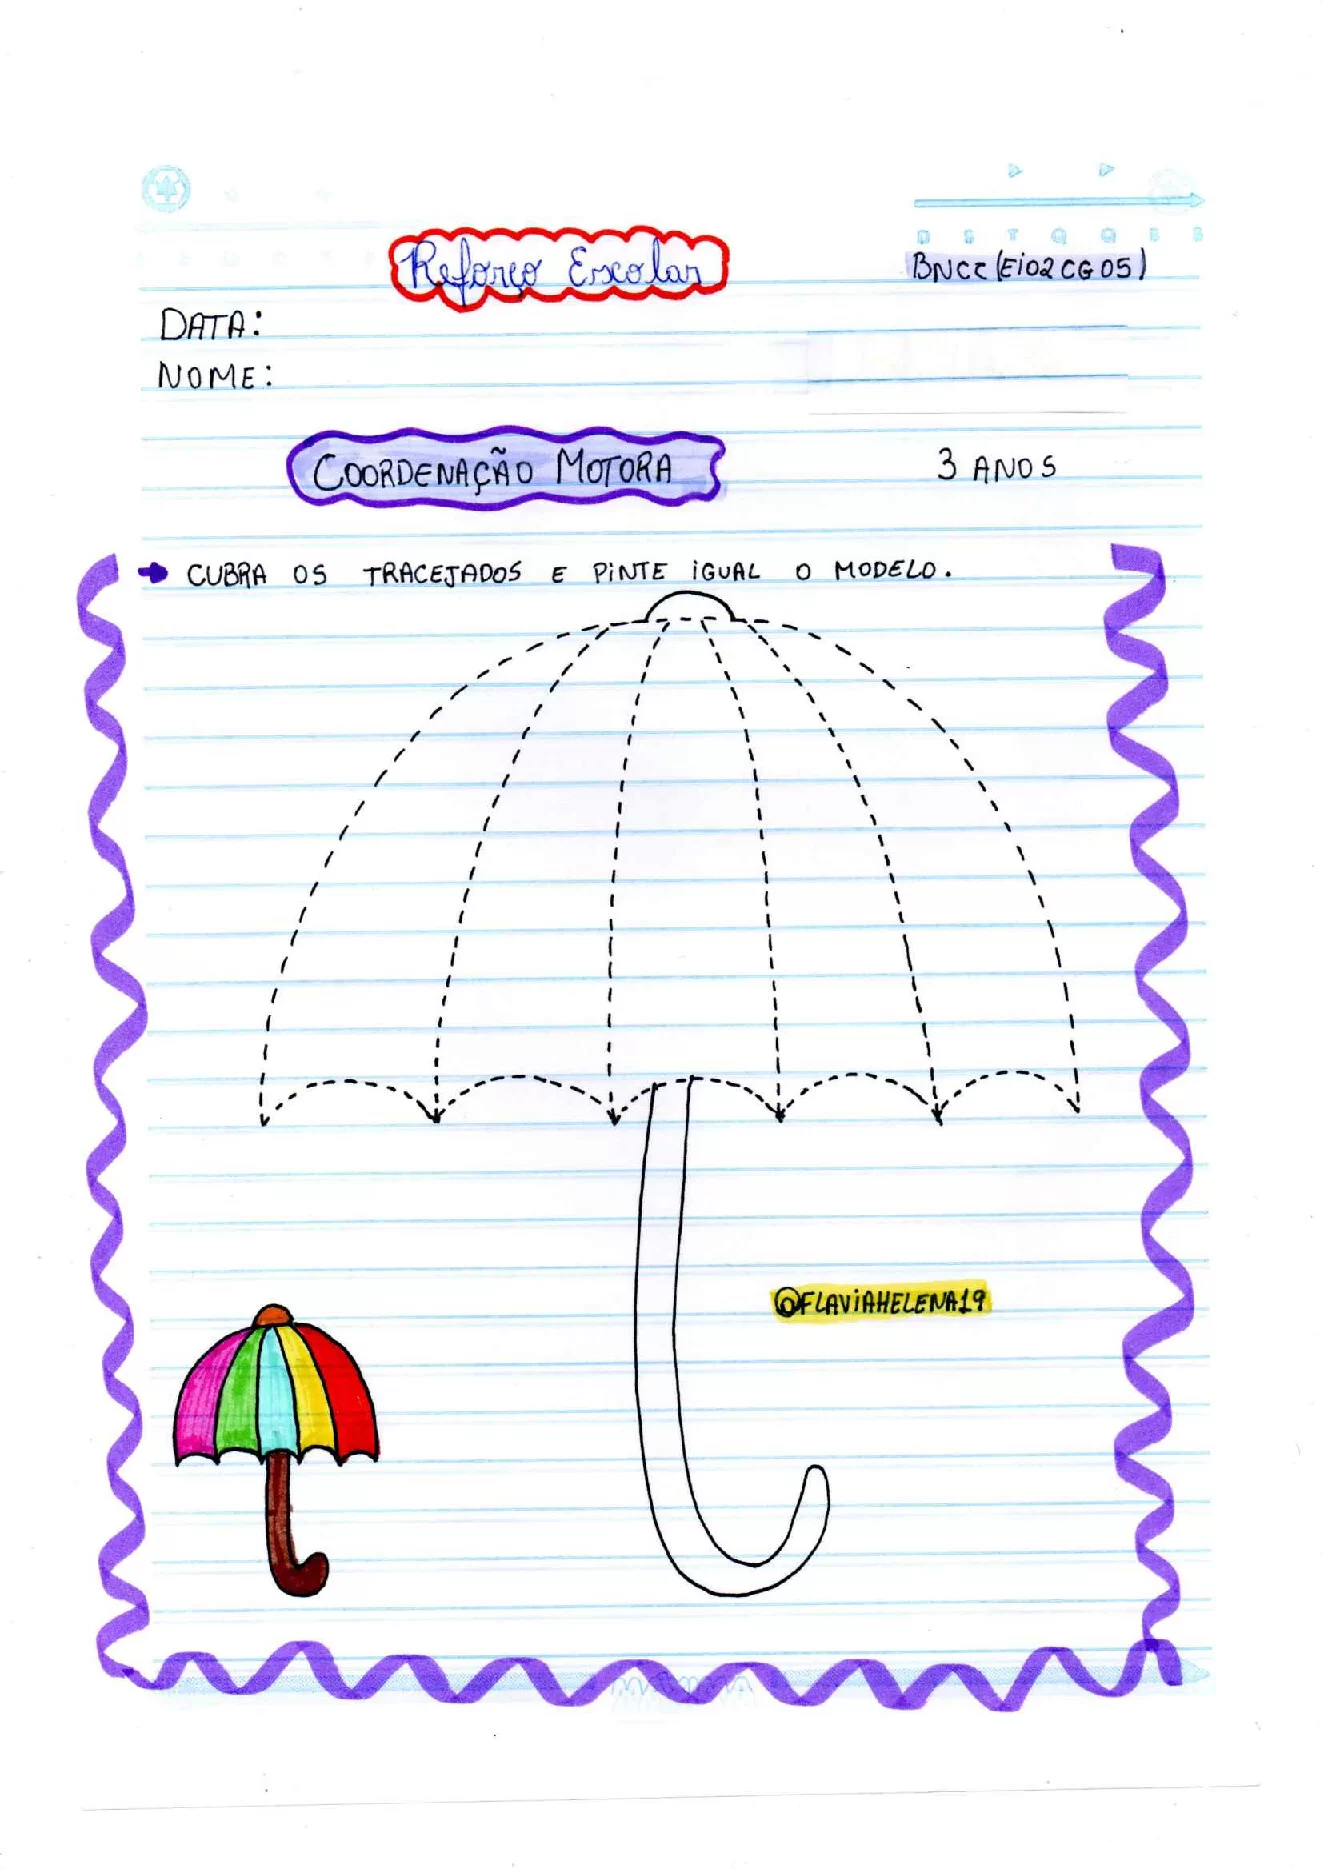 Reforço Escolar
BNCC (EI02CG05)
D S T Q Q S S
DATA:
NOME:
COORDENAÇÃO MOTORA
3 ANOS
CUBRA OS TRACEJADOS E PINTE IGUAL O MODELO.
@FLAVIAHELENA19